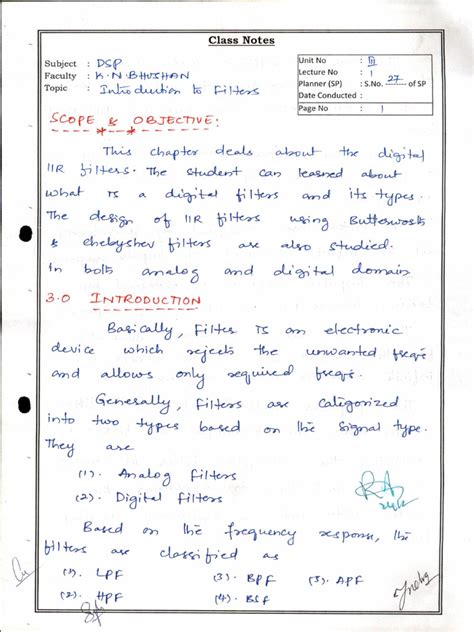 Class Notes
Subject : DSP
Faculty : K.N BHUSHAN
Topic : Introduction to Filters
Unit No : III
Lecture No : 1
Planner (SP) : S.No. 27 of SP
Date Conducted :
Page No : 1
SCOPE & OBJECTIVE:
This chapter deals about the digital
IIR filters. The student can learned about
what is a digital filters and its types.
The design of IIR filters using Butterworth
& chebyshev filters are also studied.
In both analog and digital domain
3.0 INTRODUCTION
Basically, Filter is an electronic
device which rejects the unwanted freq's
and allows only required freq's.
Generally, Filters are categorized
into two types based on the signal type.
They are
(1). Analog Filters
(2). Digital Filters
Based on the frequency response, the
filters are classified as
(1). LPF (3). BPF (5). APF
(2). HPF (4). BSF